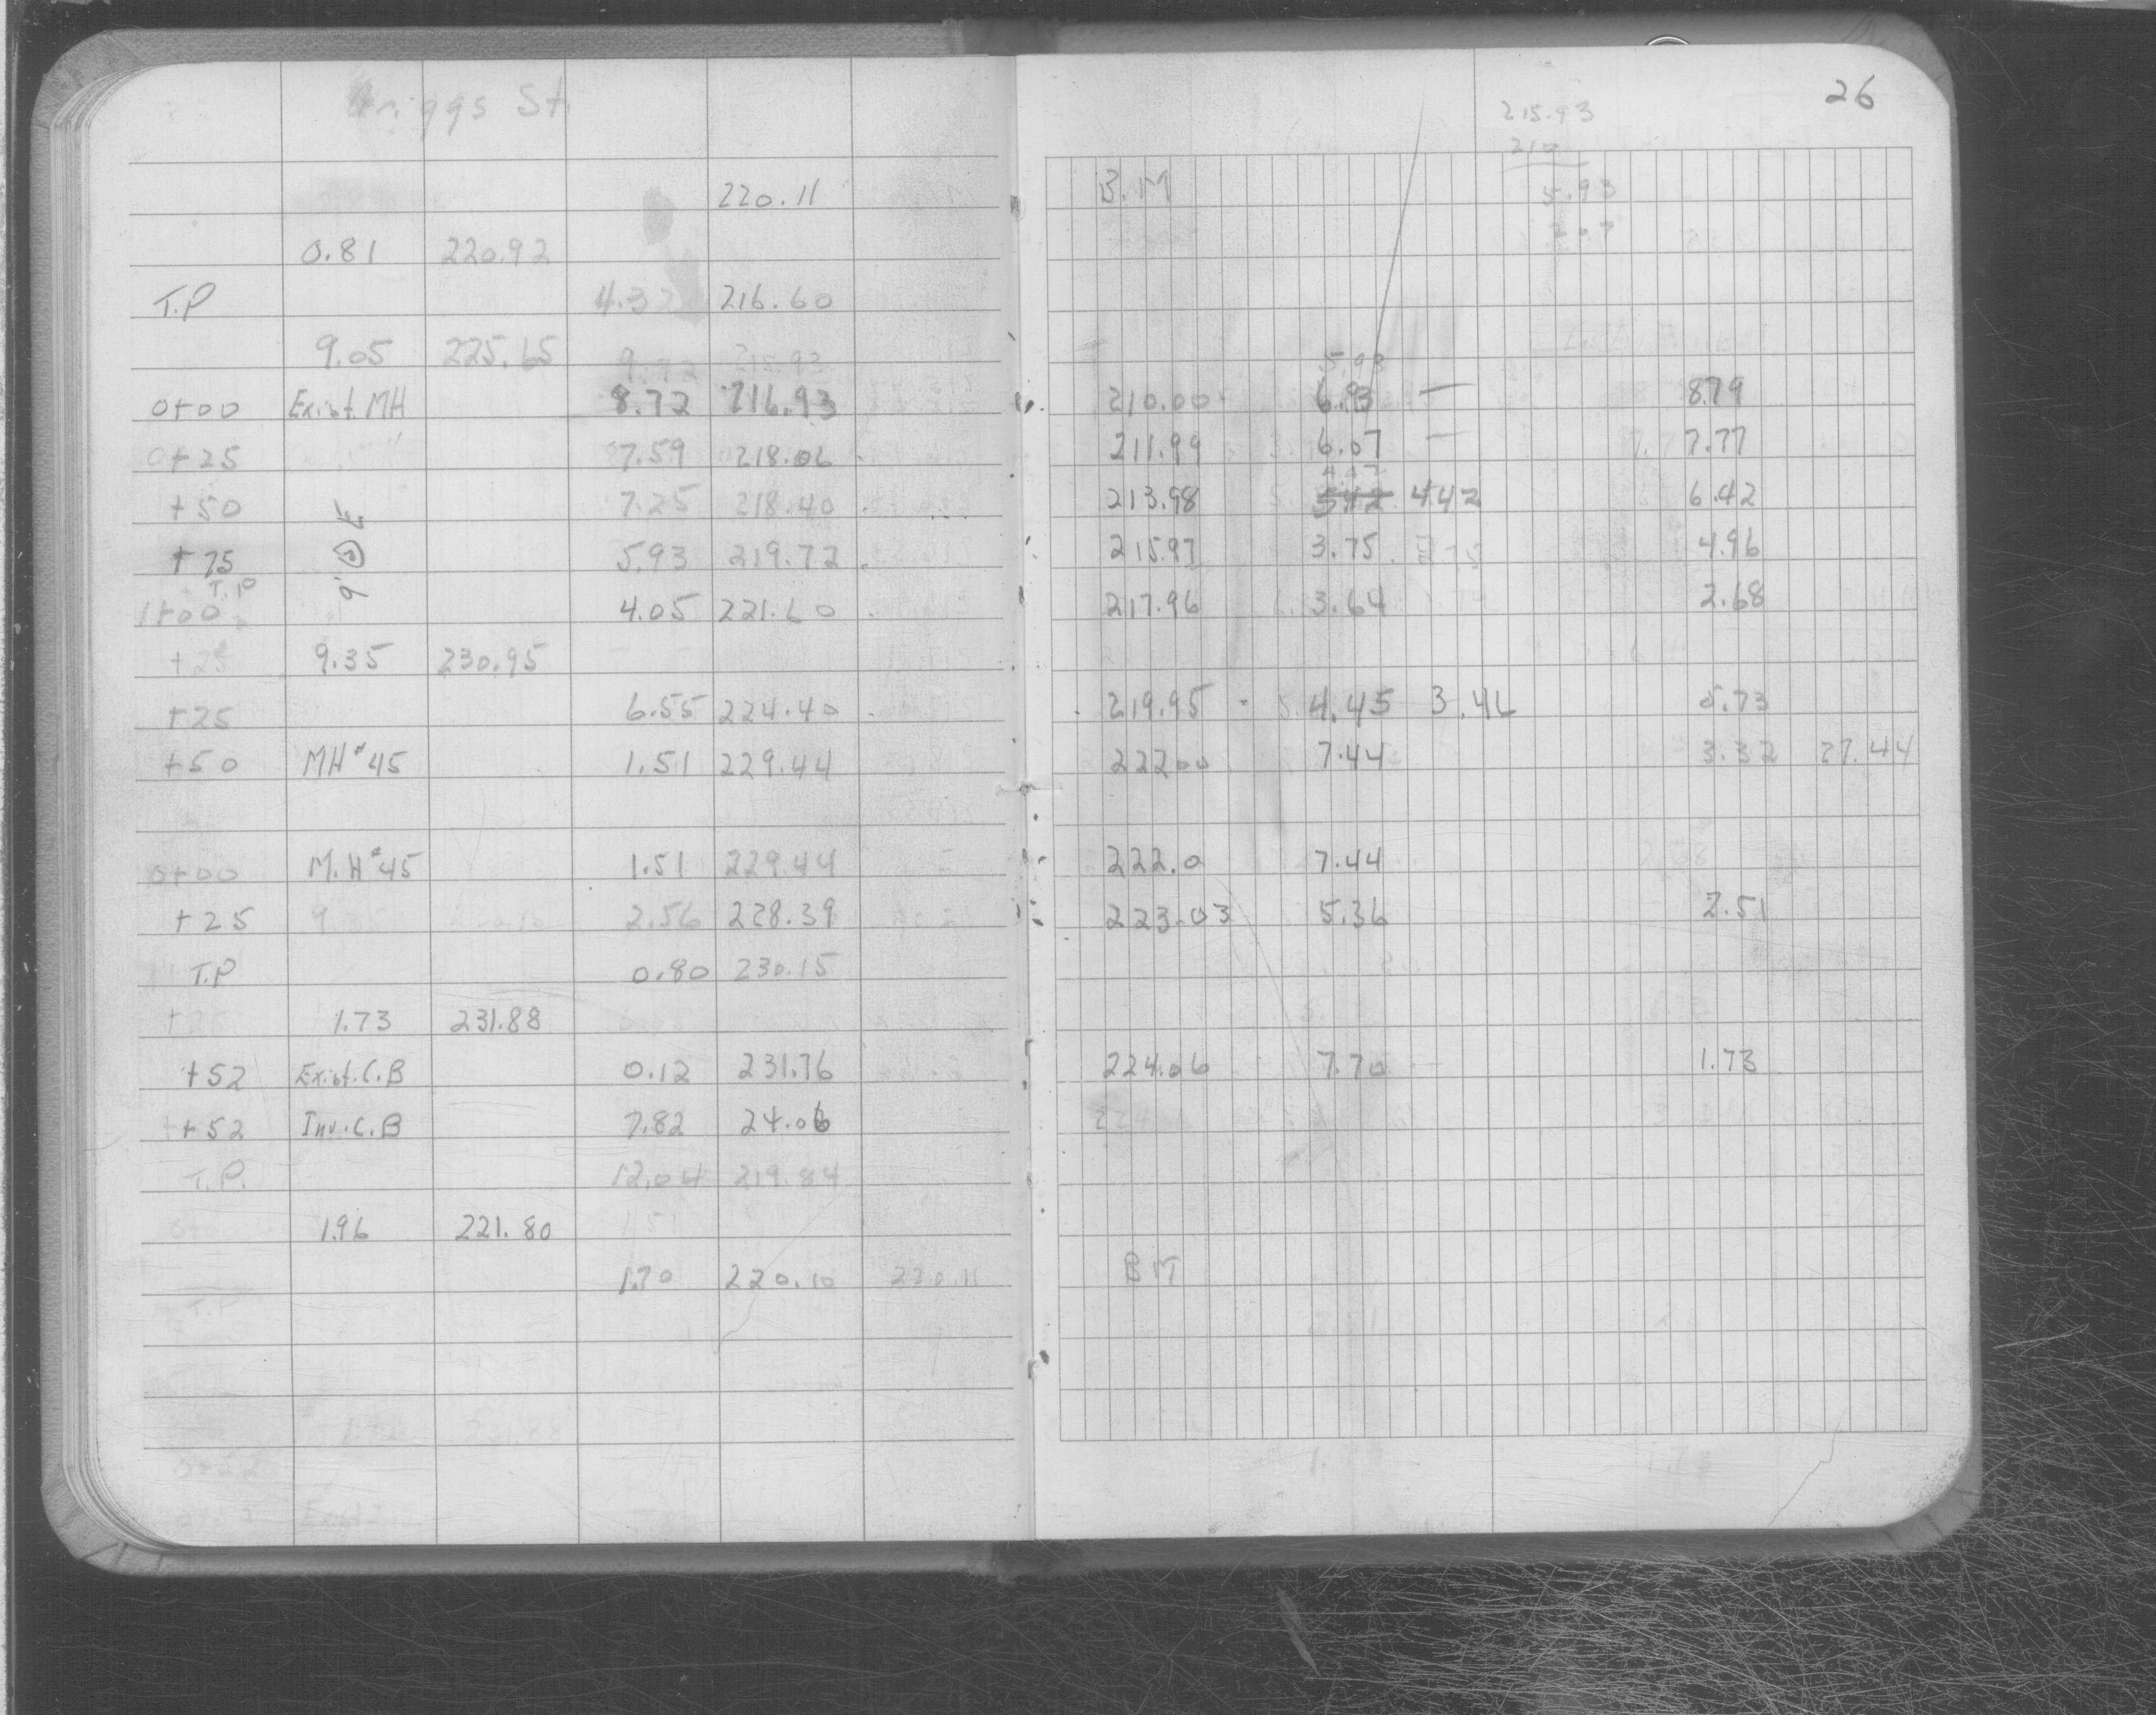 26
riggs St.
215.93
210
220.11 B.M 5.93
0.81 220.92
T.P 4.32 216.60
9.05 225.65 9.72 215.93 5.93
0+00 Exist. MH 8.72 216.93 210.00 6.93 — 8.79
0+25 7.59 218.06 211.99 6.07 — 7.77
+50 7.25 218.40 213.98 5.42 4.42 6.42
+75 5.93 219.72 215.97 3.75 4.96
T.P
1+00 4.05 221.60 217.96 3.64 2.68
+25 9.35 230.95
+25 6.55 224.40 219.95 - 4.45 3.46 5.73
+50 MH #45 1.51 229.44 222.00 7.44 3.32 27.44
0+00 M.H #45 1.51 229.44 222.0 7.44
+25 2.56 228.39 223.03 5.36 2.51
T.P 0.80 230.15
1.73 231.88
+52 Exist. C.B 0.12 231.76 224.06 7.70 1.73
+52 Inv. C.B 7.82 24.06
T.P. 12.04 219.84
1.96 221.80
1.70 220.10 220.11 BM